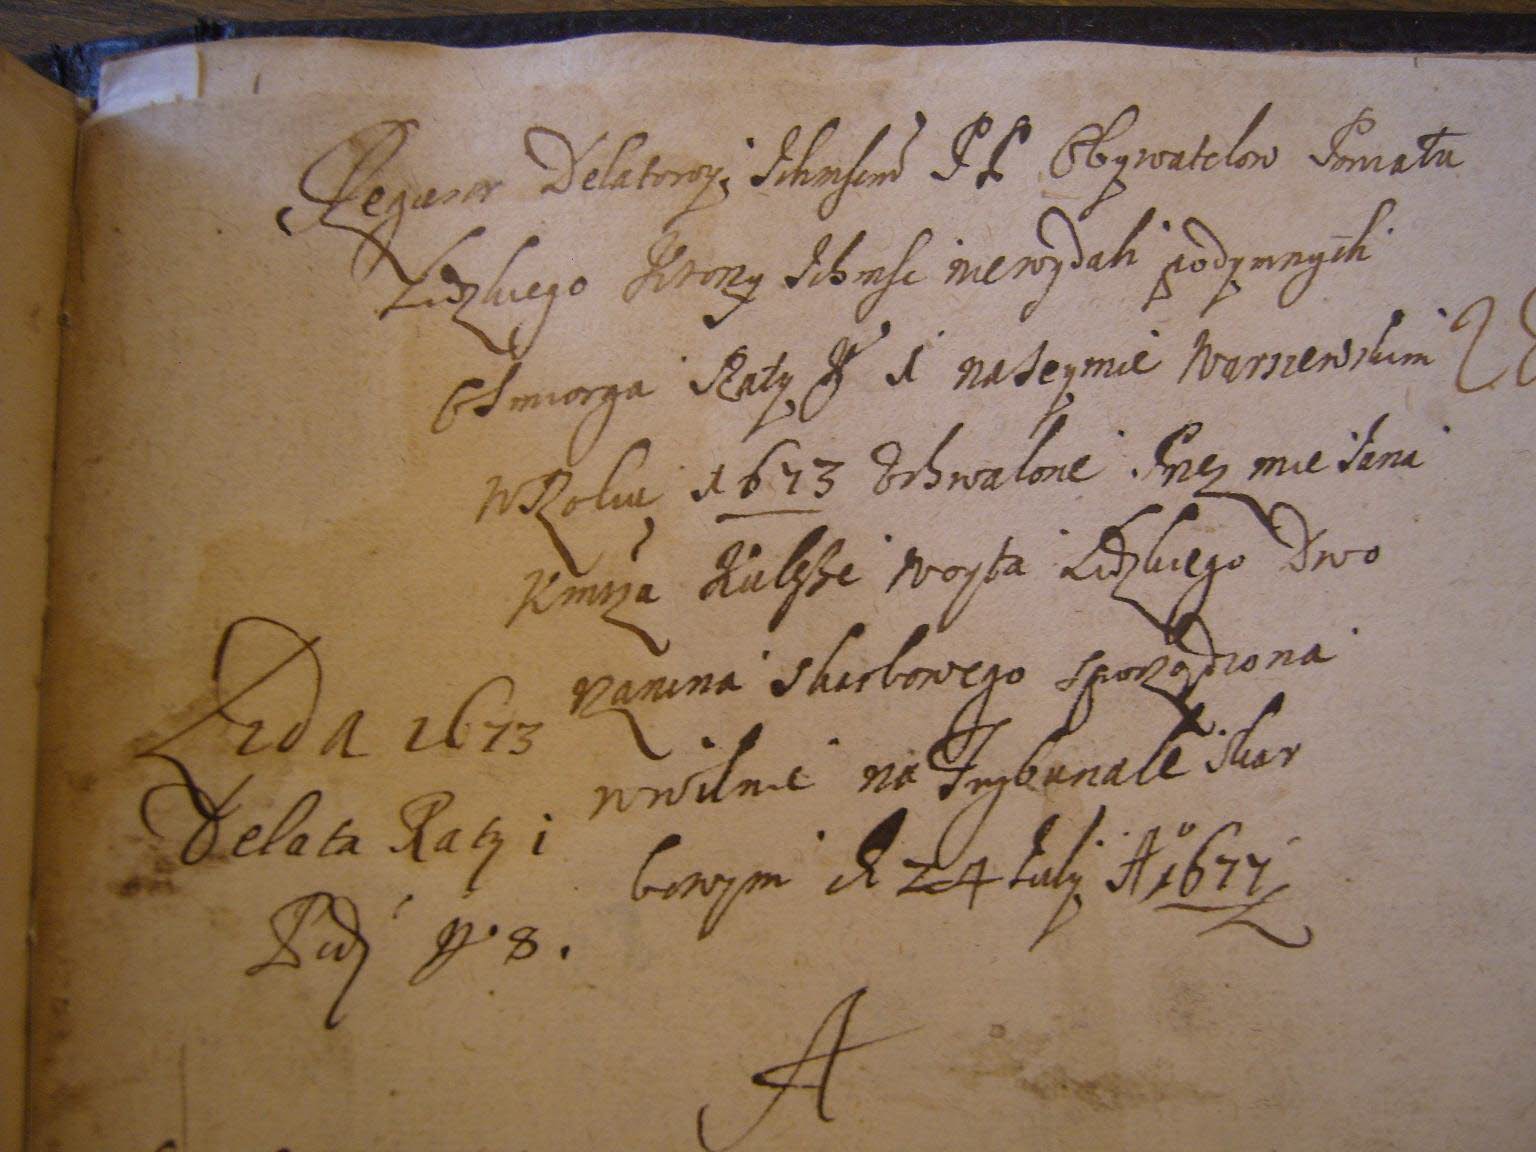 Regestr Delatorzy Ichmsciow PP Obywatelow Powiatu
Lidzkiego Ktorzy Ichmsc niewydali podymnych
Osmiorga Raty N 1 na Seymie Warszewskim
w Roku 1673 Uchwalone Przez mie Jana
Kmita woyta Lidzkiego Dwo
rzanina skarbowego sporządzona
w Wilnie na Trybunale skar
bowym d 24 July Aº 1677
Lida 1673
Delata Raty i
Pod N. 8.
A